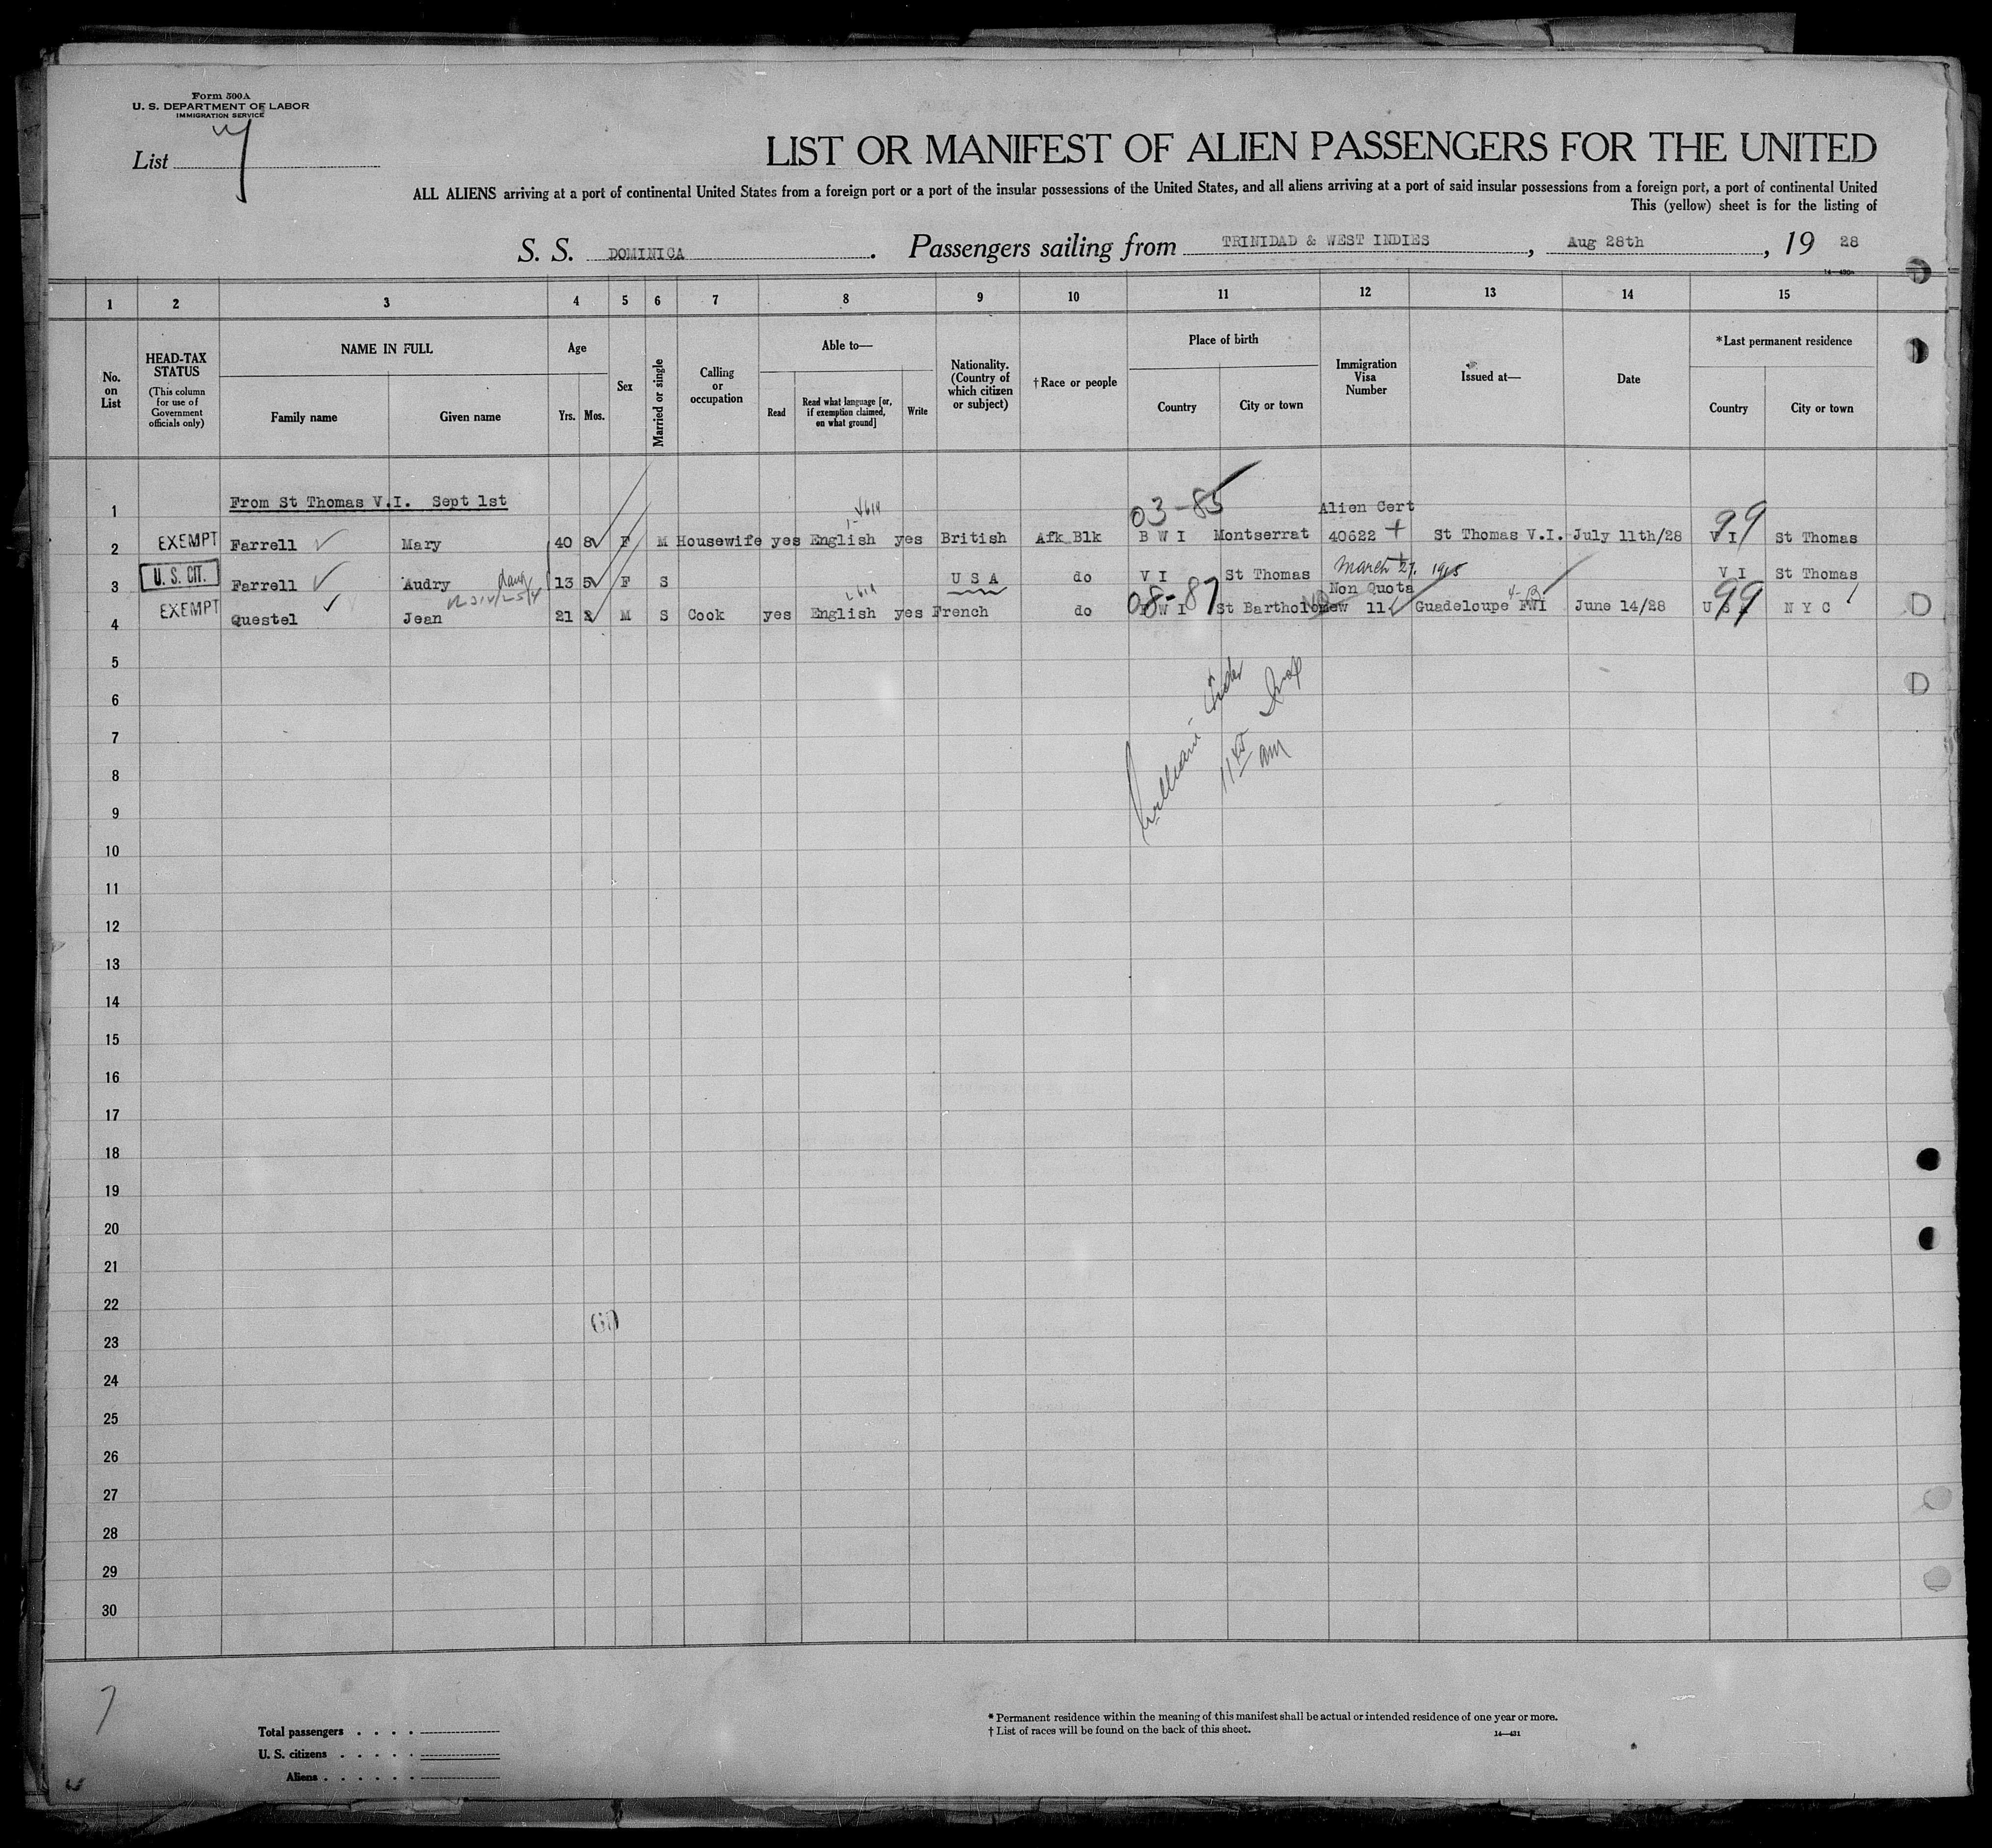 Form 500A
U. S. DEPARTMENT OF LABOR
IMMIGRATION SERVICE
List 7
LIST OR MANIFEST OF ALIEN PASSENGERS FOR THE UNITED
ALL ALIENS arriving at a port of continental United States from a foreign port or a port of the insular possessions of the United States, and all aliens arriving at a port of said insular possessions from a foreign port, a port of continental United
This (yellow) sheet is for the listing of
S. S. DOMINICA. Passengers sailing from TRINIDAD & WEST INDIES, Aug 28th, 19 28
1 2 3 4 5 6 7 8 9 10 11 12 13 14 15
No. on List
HEAD-TAX STATUS
(This column for use of Government officials only)
NAME IN FULL
Family name
Given name
Age
Yrs. Mos.
Sex
Married or single
Calling or occupation
Able to—
Read
Read what language [or, if exemption claimed, on what ground]
Write
Nationality. (Country of which citizen or subject)
†Race or people
Place of birth
Country
City or town
Immigration Visa Number
Issued at—
Date
*Last permanent residence
Country
City or town
1 From St Thomas V.I. Sept 1st
03-85 Alien Cert 99
2 EXEMPT Farrell Mary 40 8 F M Housewife yes English yes British Afk Blk B W I Montserrat 40622 St Thomas V.I. July 11th/28 V I St Thomas
March 27, 1915
3 U. S. CIT. Farrell Audry daug 13 5 F S U S A do V I St Thomas V I St Thomas
08-87 Non Quota 99
4 EXEMPT Questel Jean 21 M S Cook yes English yes French do W I St Bartholomew 11 Guadeloupe FWI June 14/28 U S A N Y C
5
6
7
8
9
10
11
12
13
14
15
16
17
18
19
20
21
22
60
23
24
25
26
27
28
29
30
7
Total passengers
U. S. citizens
Aliens
* Permanent residence within the meaning of this manifest shall be actual or intended residence of one year or more.
† List of races will be found on the back of this sheet.
14—431